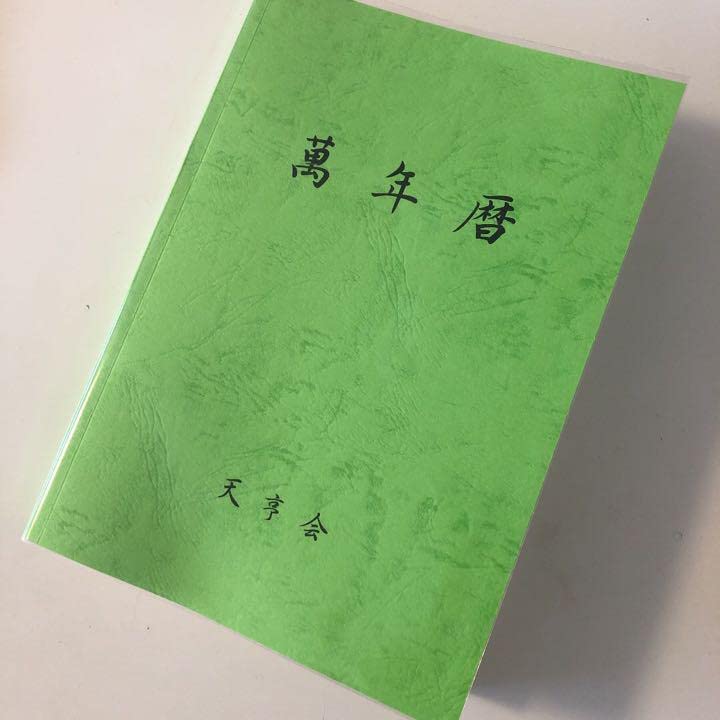 萬年暦
天亨会